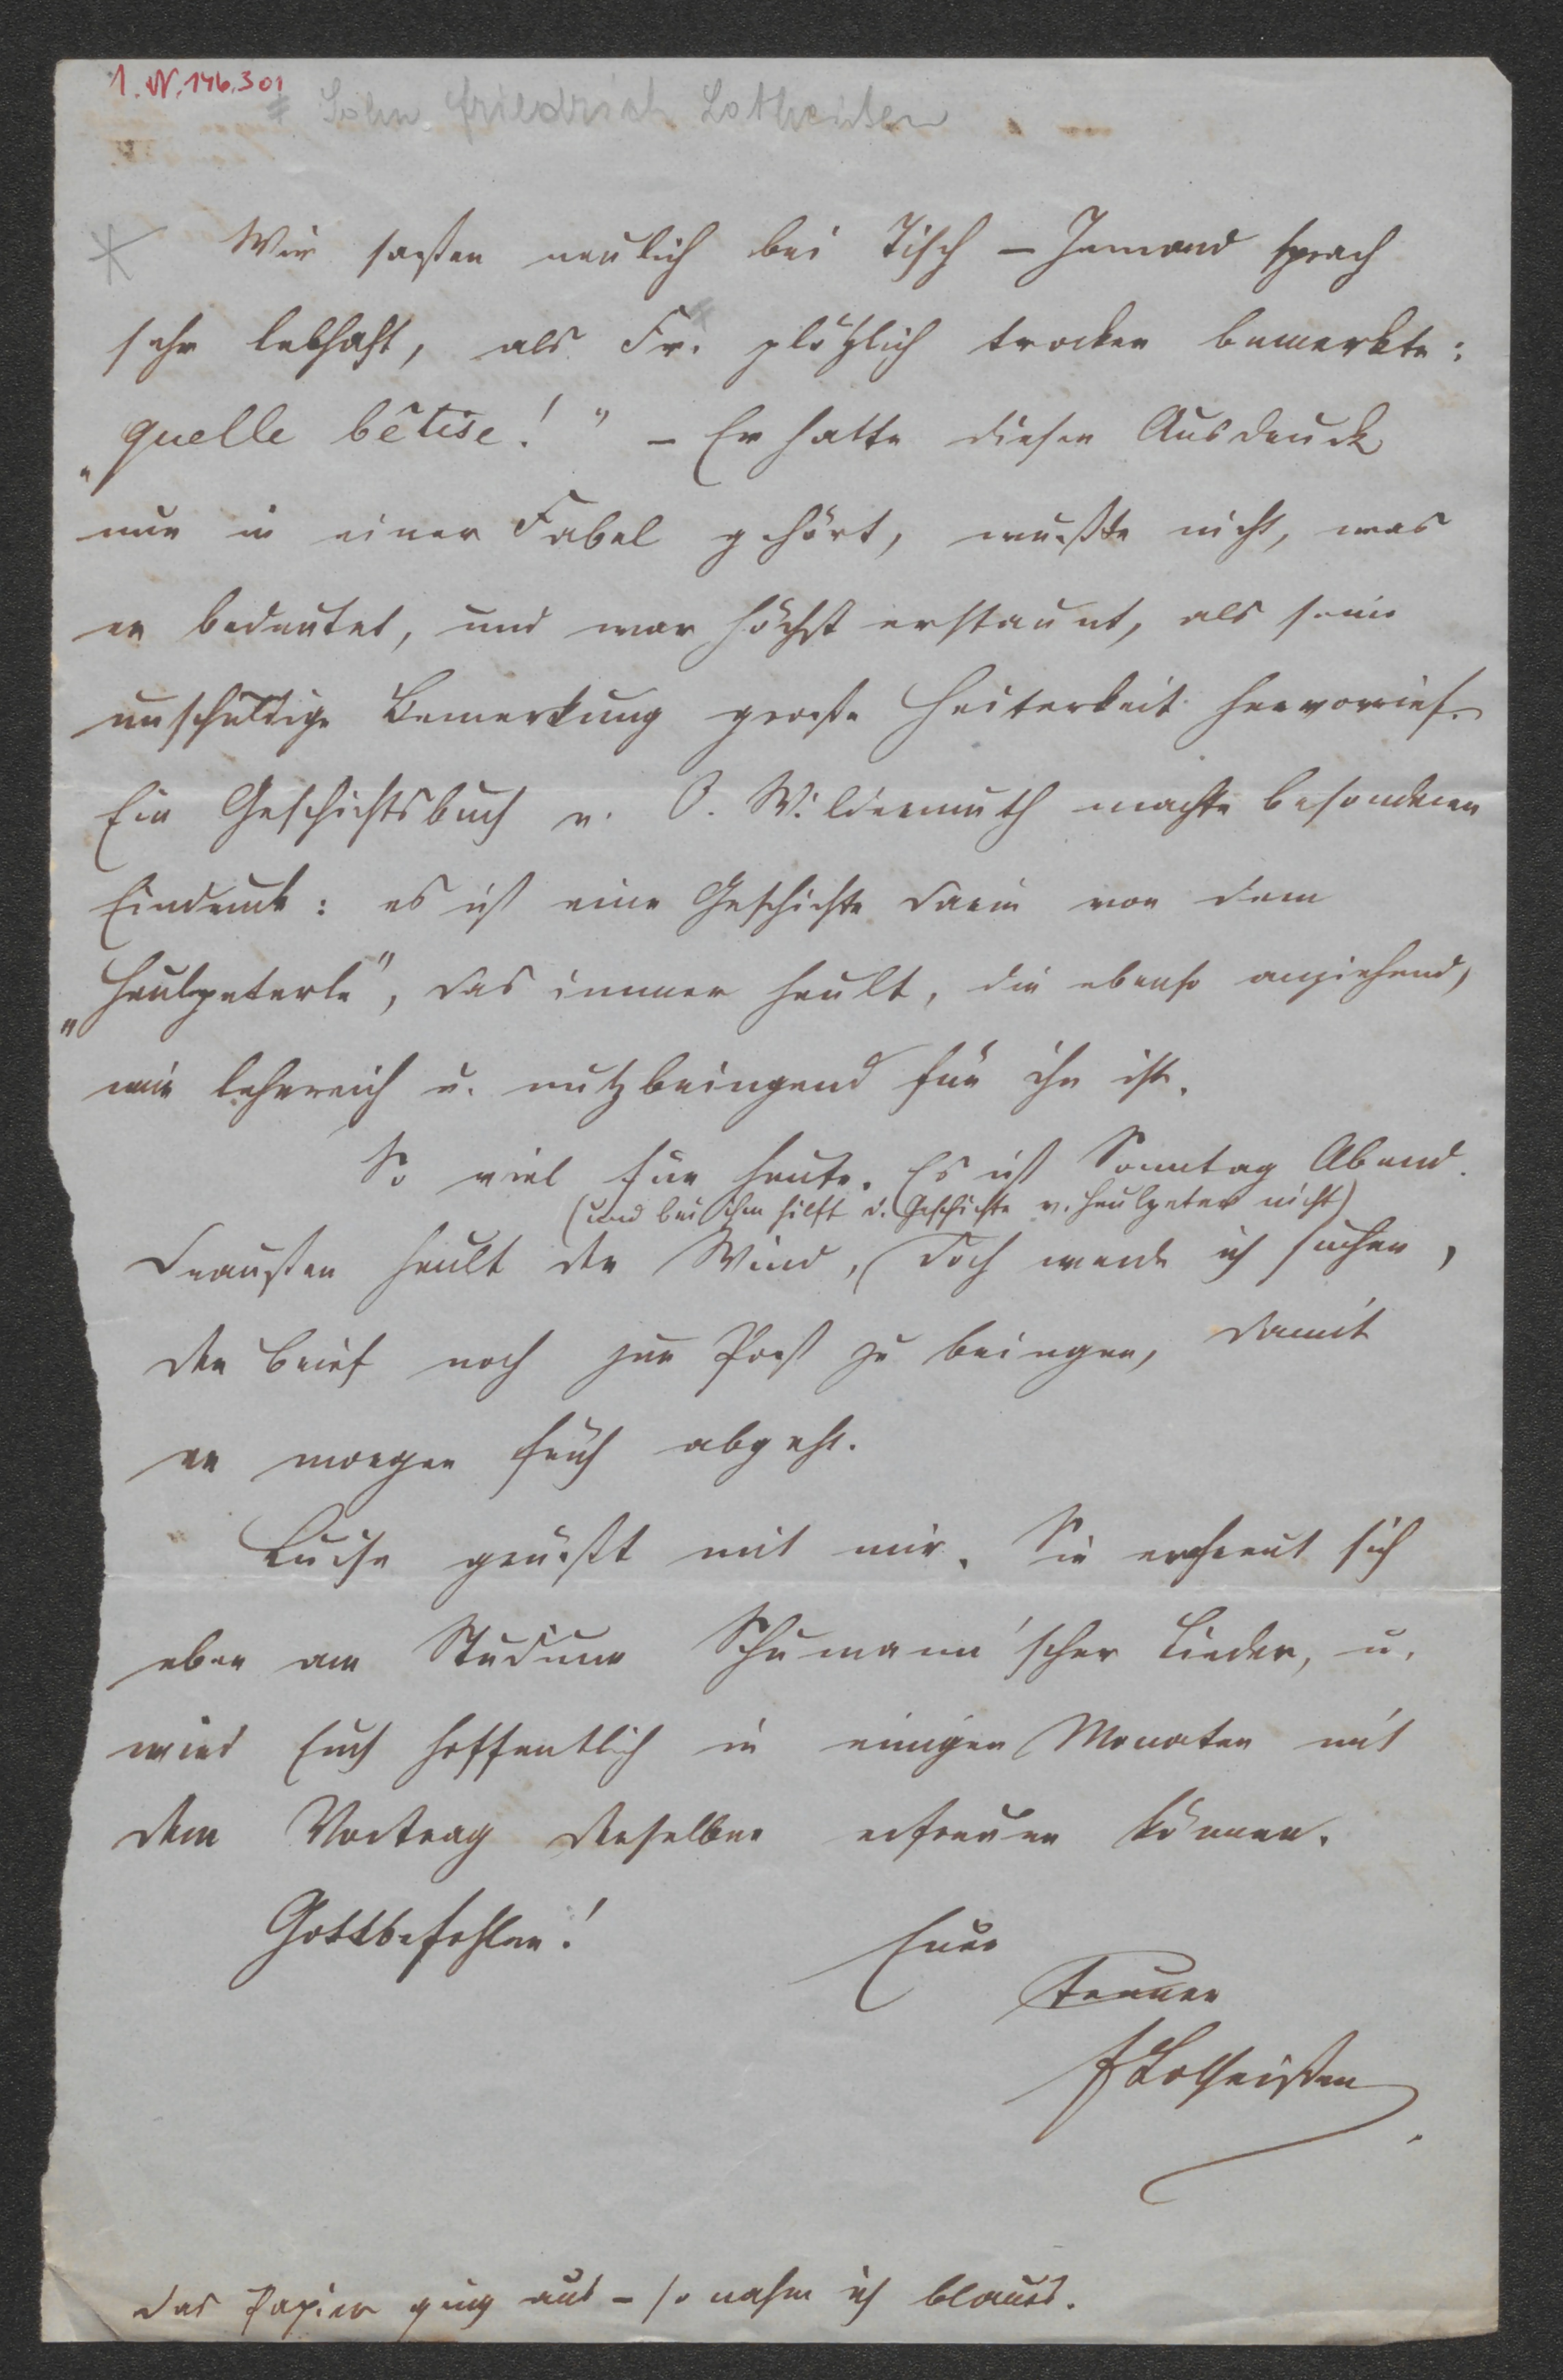 1. N. 146.301
# Sohn Friedrich Lotheißen
* Wir saßen neulich bei Tisch – Jemand sprach
sehr lebhaft, als Fr. plötzlich trocken bemerkte:
„quelle bêtise!" – Er hatte diesen Ausdruck
nur in einer Fabel gehört, wußte nicht, was
er bedeutet, und war höchst erstaunt, als seine
unschuldige Bemerkung große Heiterkeit hervorrief.
Ein Geschichtsbuch v. O. Wildermuth machte besonderen
Eindruck: es ist eine Geschichte darin von dem
„Heulpeterle", das immer heult, die ebenso anziehend,
wie lehrreich u. nutzbringend für ihn ist.
So viel für heute. Es ist Sonntag Abend.
(und bei ihm hilft d. Geschichte v. Heulpeter nicht)
Draußen heult der Wind, doch werde ich suchen,
den Brief noch zur Post zu bringen, damit
er morgen früh abgeht.
Luise grüßt mit mir. Sie erfreut sich
eben am Studium Schumann'scher Lieder, u.
wird Euch hoffentlich in einigen Monaten mit
dem Vortrag derselben erfreuen können.
Gottbefohlen! Euer
treuer
FLotheißen
Das Papier ging aus – so nahm ich blaues.